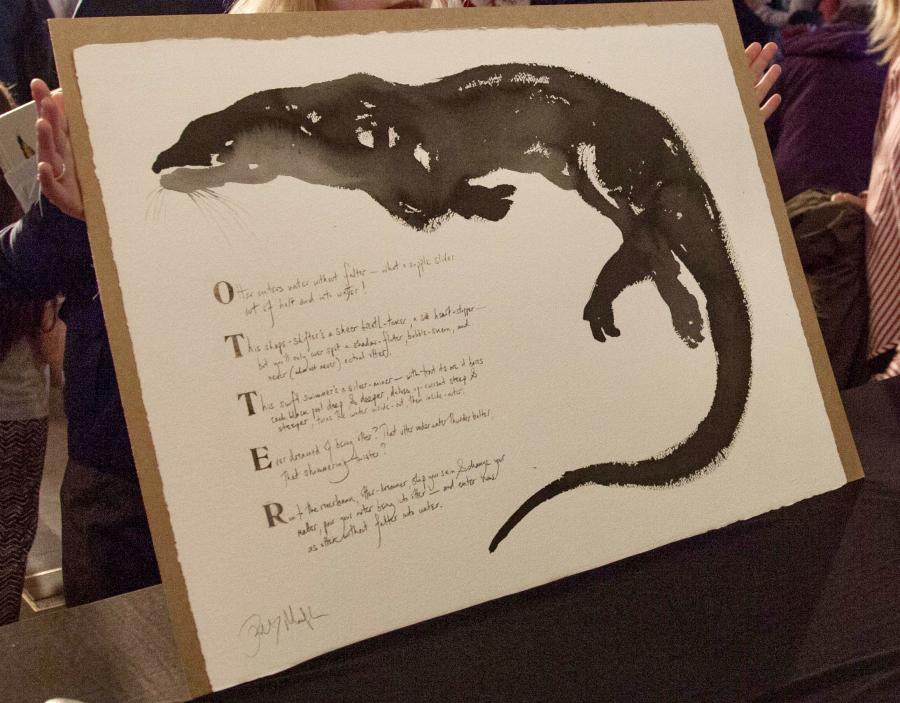 Otter enters water without falter — what a supple slider
out of holt and into water!
This shape-shifter's a sheer breath-taker, a sure heart-stopper —
but you'll only ever spot a shadow-flutter, bubble-skein, and
never (almost never) actual otter.
This swift swimmer's a silver-miner — with trout its ore it bores
each black pool deep & deeper, delves up-current steep &
steeper, turns the water inside-out then inside-outer.
Ever dreamed of being otter? That utter underwater thunder bolter,
that shimmering twister?
Run to the riverbank, otter-dreamer, slip your skin & change your
matter, pour your outer being into otter — and enter now
as otter without falter into water.